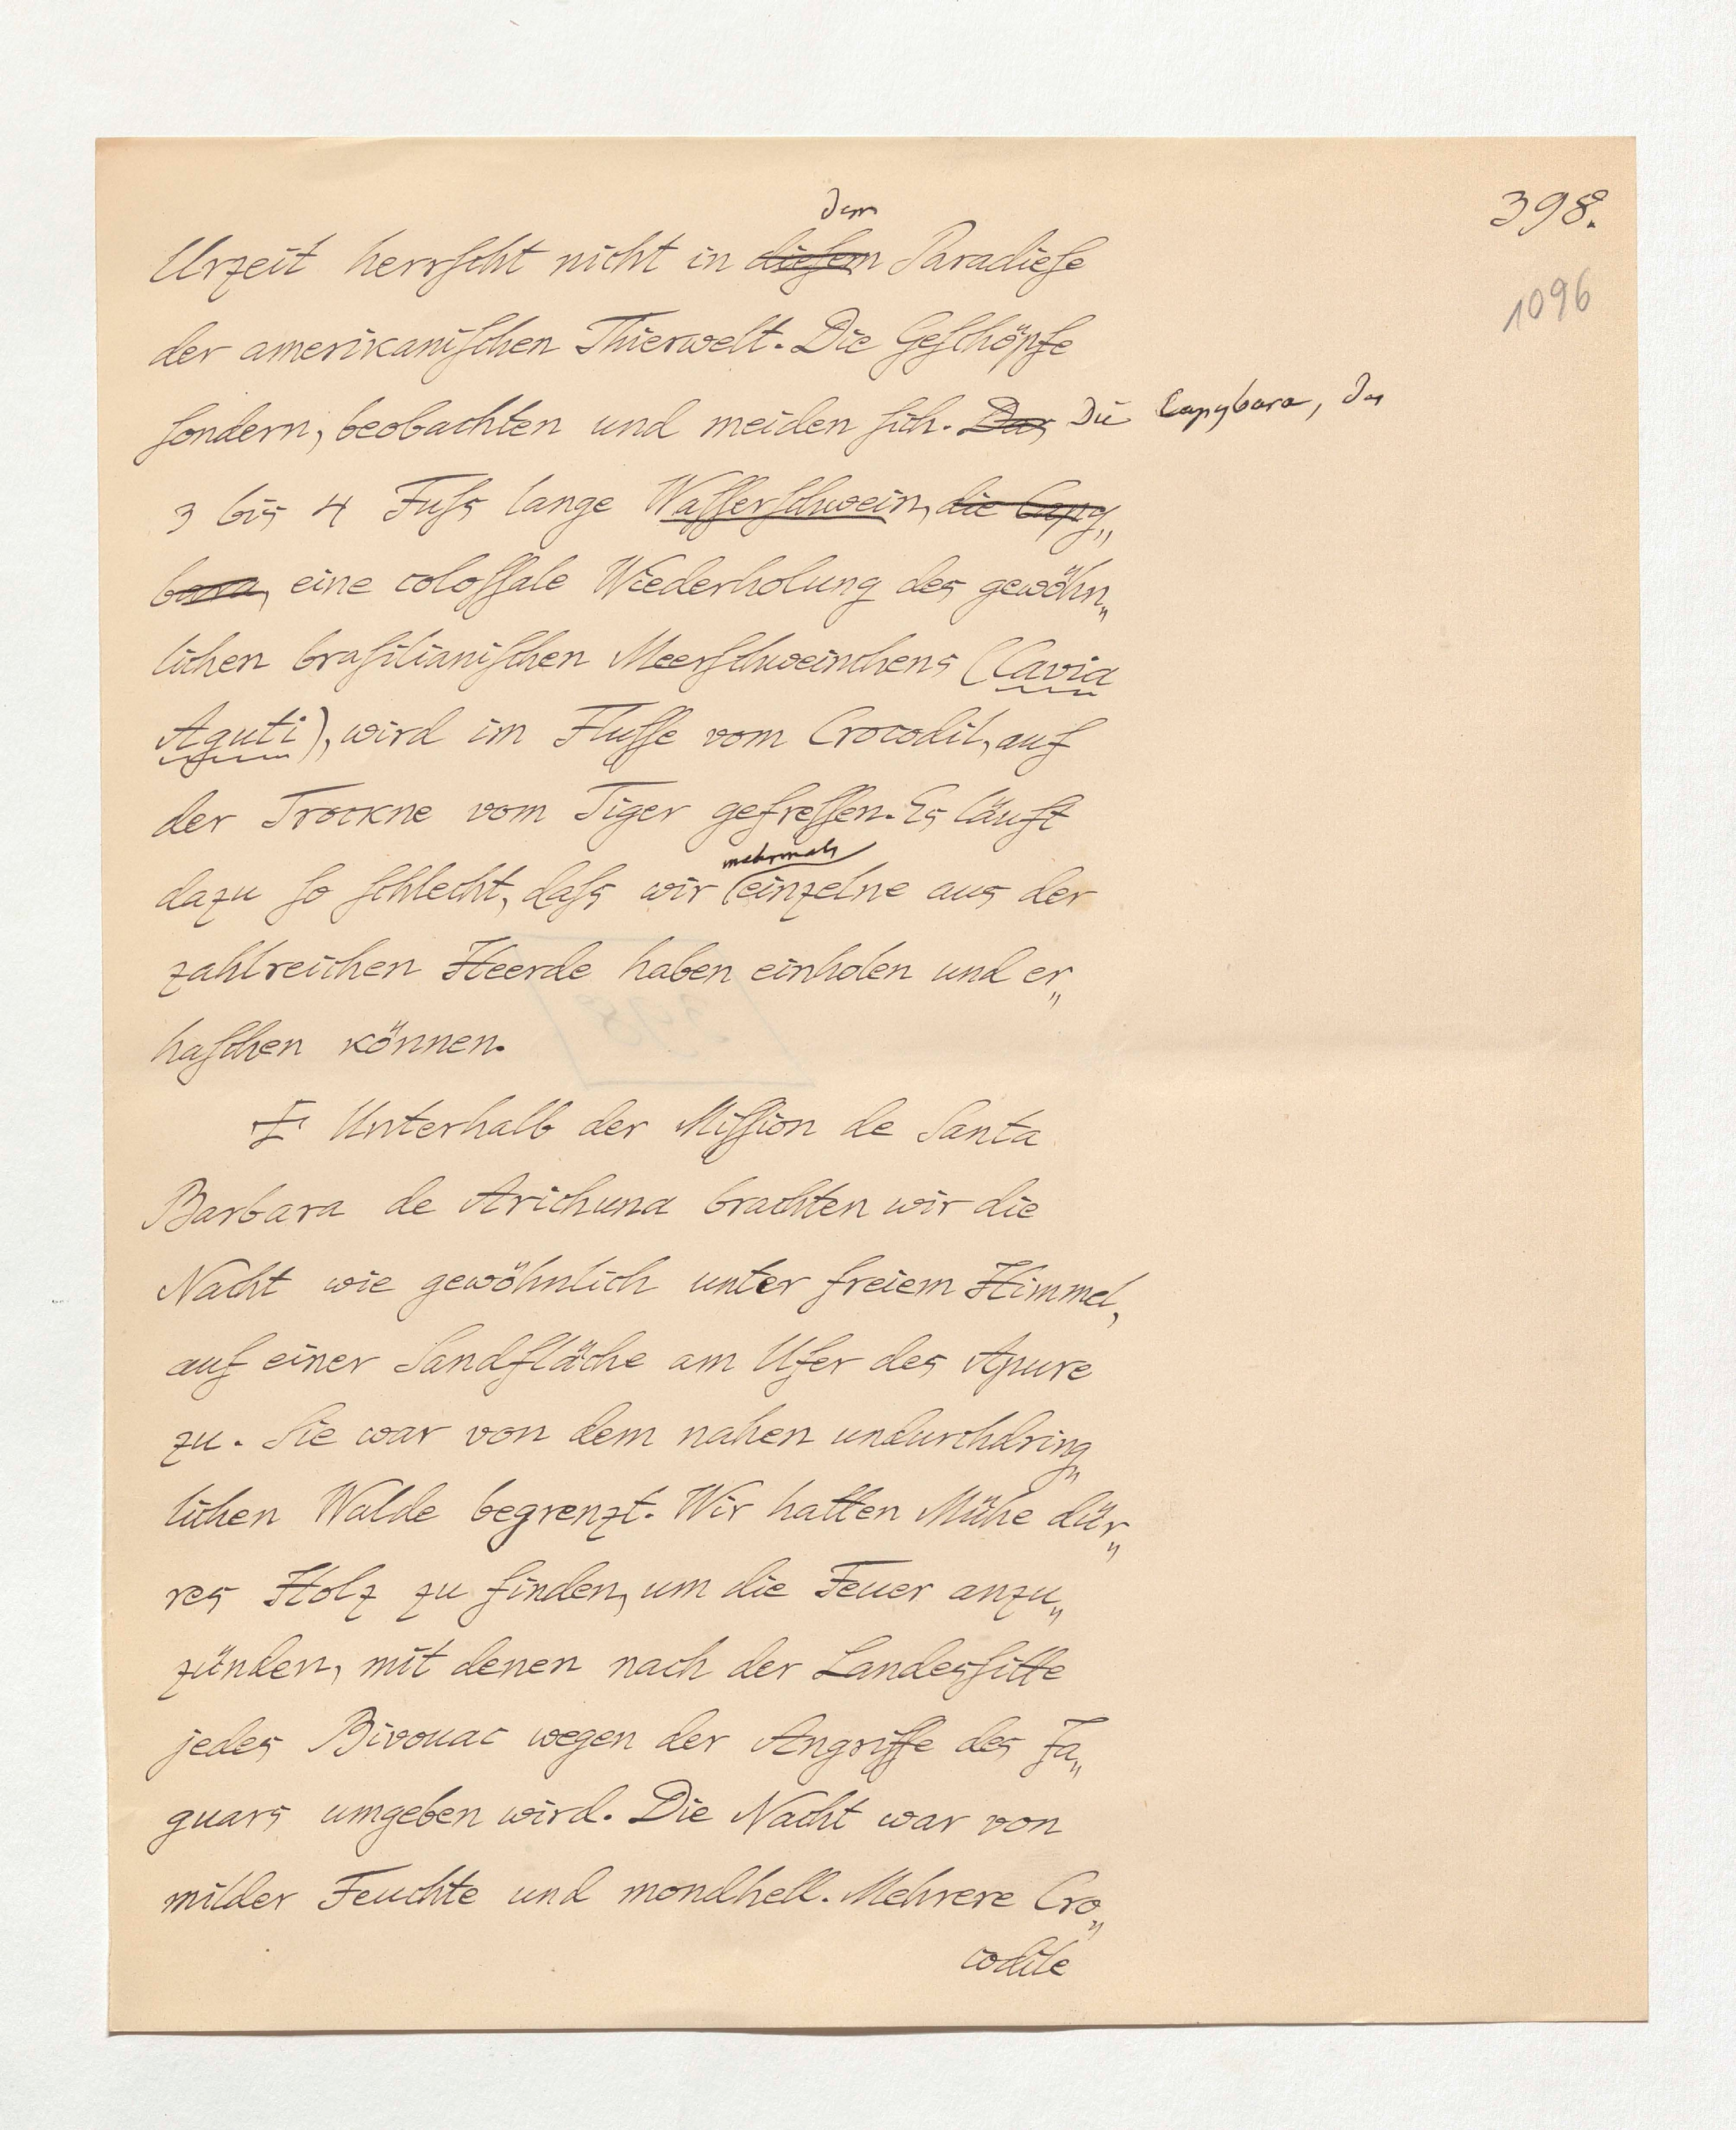 398.
1096
dem
Urzeit herrscht nicht in diesem Paradiese
der amerikanischen Thierwelt. Die Geschöpfe
sondern, beobachten und meiden sich. Das Die Capybara, das
3 bis 4 Fuss lange Wasserschwein, die Capy„
bara, eine colossale Wiederholung des gewöhn„
lichen brasilianischen Meerschweinchens (Cavia
Aguti), wird im Flusse vom Crocodil, auf
der Trockne vom Tiger gefressen. Es läuft
mehrmals
dazu so schlecht, dass wir einzelne aus der
zahlreichen Heerde haben einholen und er„
haschen können.
Unterhalb der Mission de Santa
Barbara de Arichuna brachten wir die
Nacht wie gewöhnlich unter freiem Himmel,
auf einer Sandfläche am Ufer des Apure
zu. Sie war von dem nahen undurchdring„
lichen Walde begrenzt. Wir hatten Mühe dür„
res Holz zu finden, um die Feuer anzu„
zünden, mit denen nach der Landessitte
jedes Bivouac wegen der Angriffe des Ja„
guars umgeben wird. Die Nacht war von
milder Feuchte und mondhell. Mehrere Cro„
codile